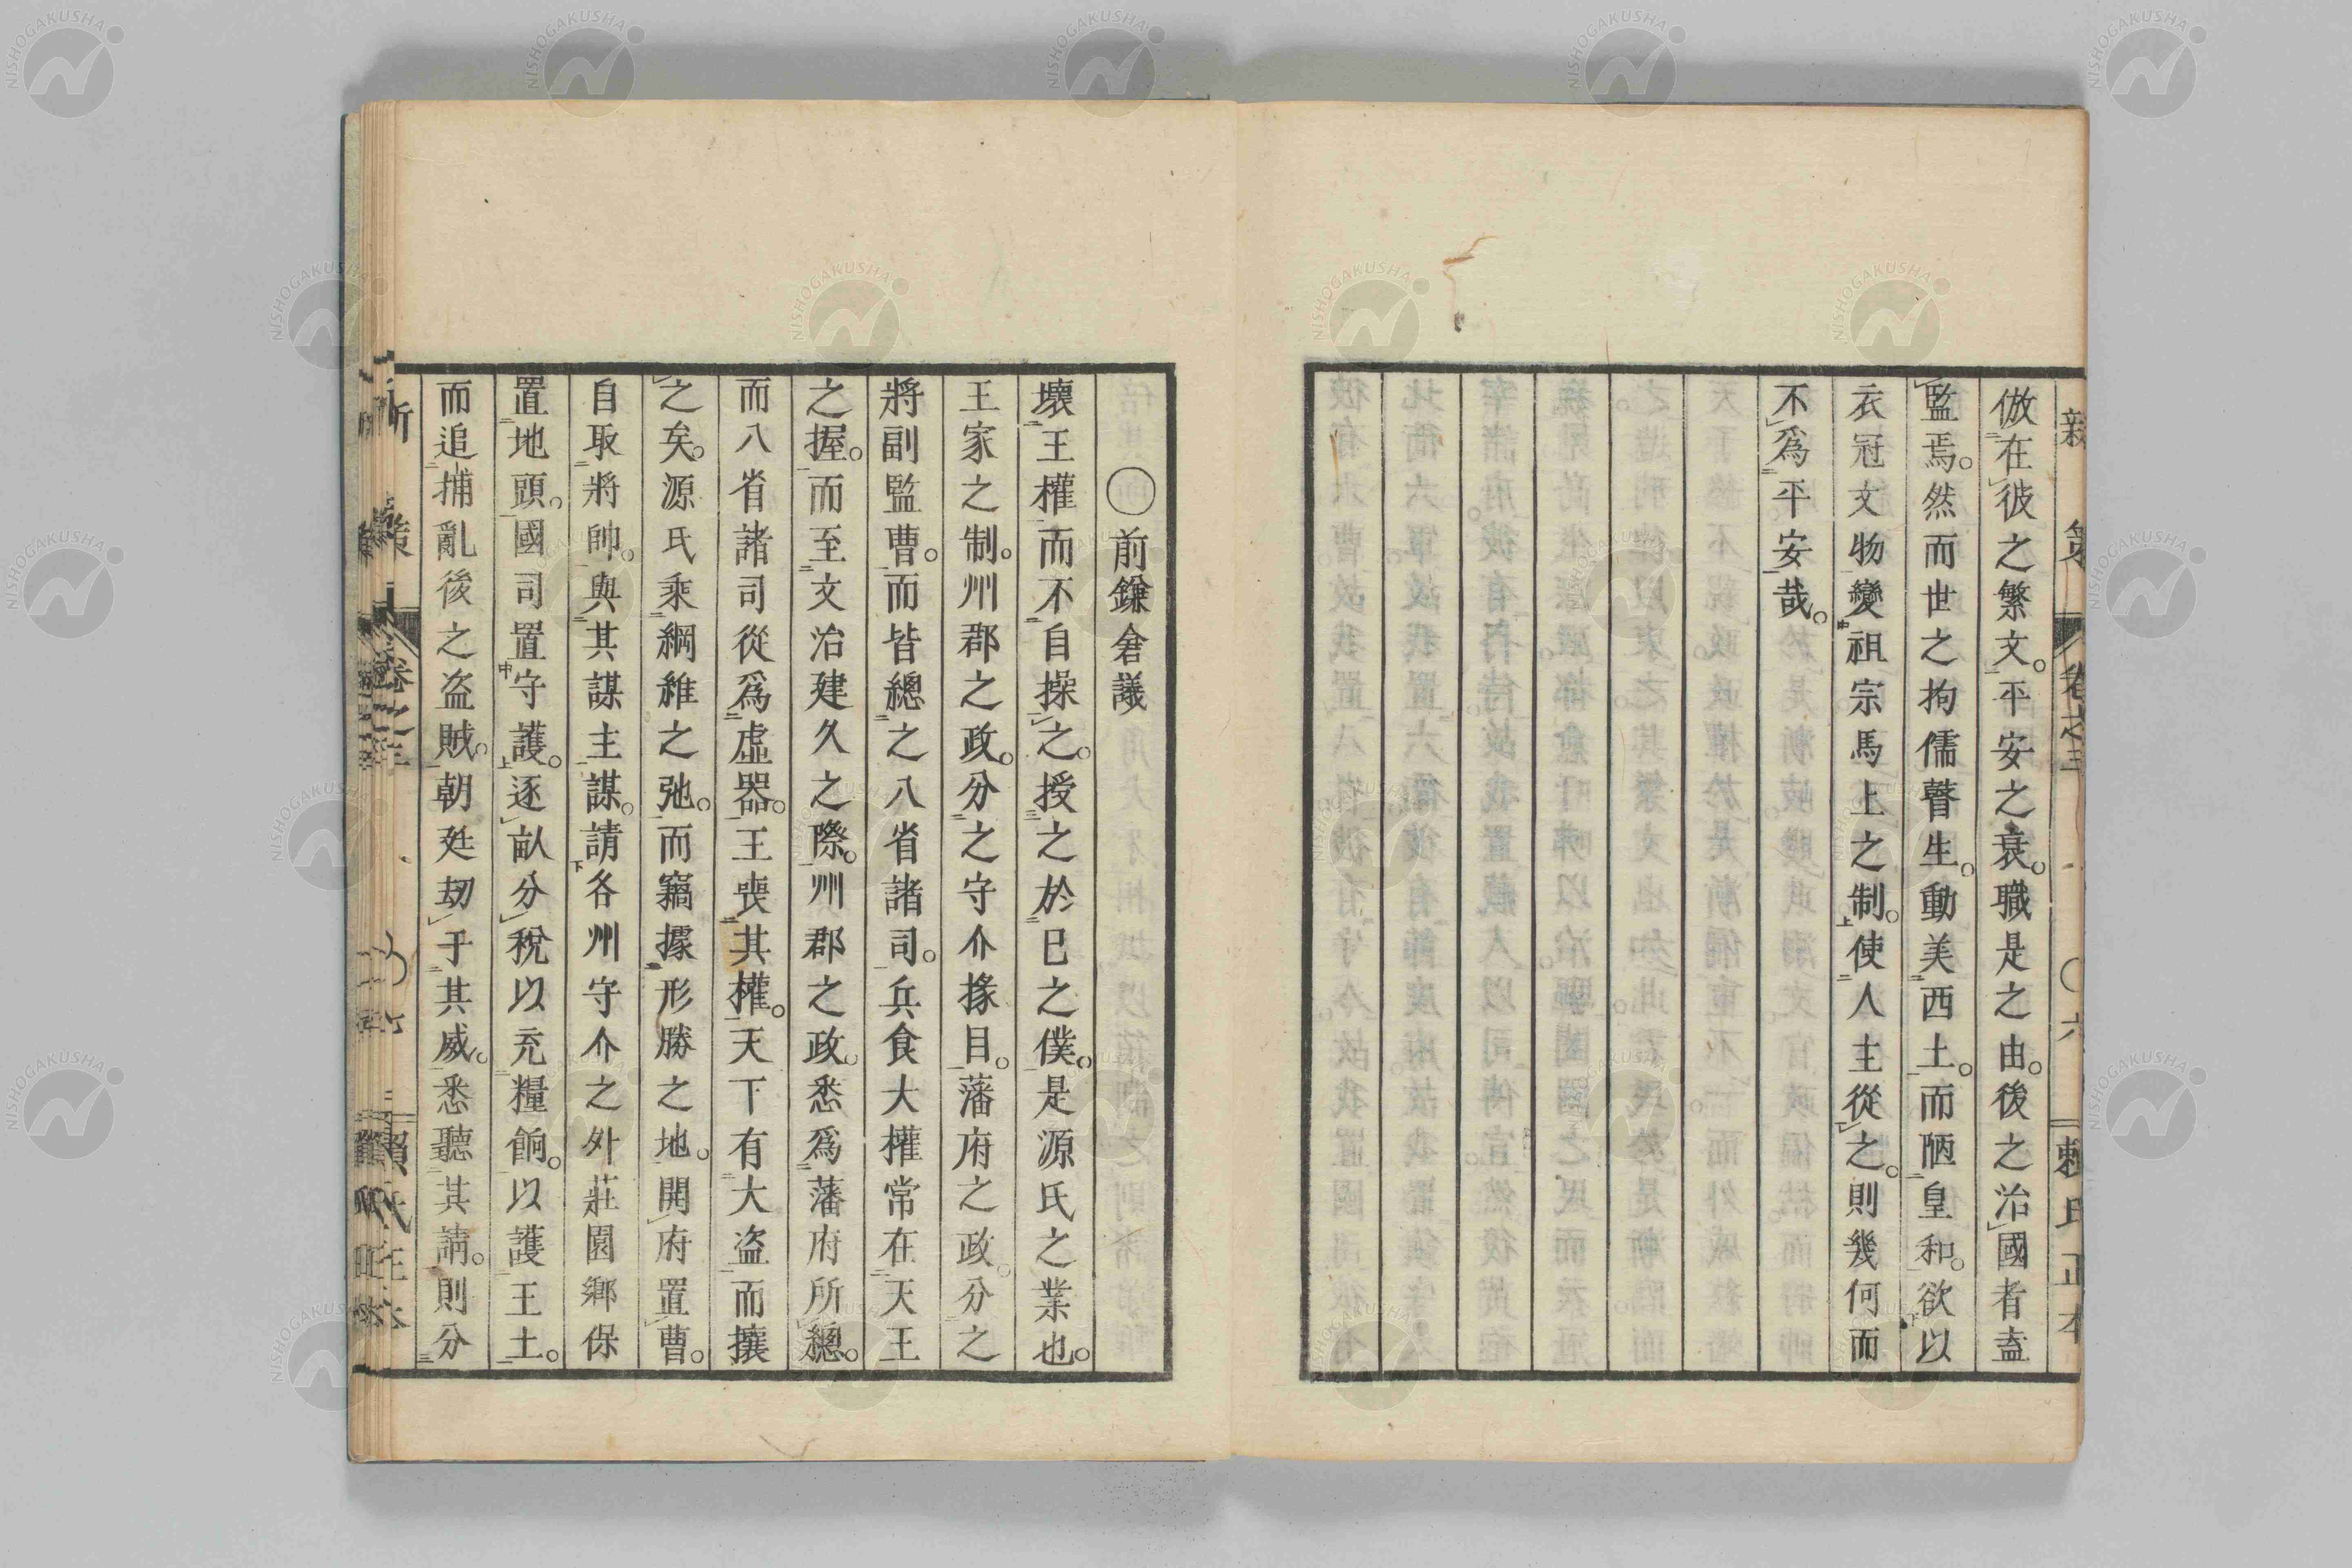 新策 卷之三 〇六 賴氏正本
倣在彼之繁文。平安之衰。職是之由。後之治國者盍
監焉。然而世之拘儒瞽生。動美西土。而陋皇和。欲以
衣冠文物變祖宗馬上之制。使人主從之。則幾何而
不爲平安哉。
〇前鎌倉議
壞王權而不自操之。授之於已之僕。是源氏之業也。
王家之制。州郡之政。分之守介掾目。藩府之政。分之
將副監曹。而皆總之八省諸司。兵食大權常在天王
之握。而至文治建久之際。州郡之政。悉爲藩府所總。
而八省諸司從爲虛器。王喪其權。天下有大盗而攘
之矣。源氏乘綱維之弛。而竊據形勝之地。開府置曹。
自取將帥。與其謀主謀。請各州守介之外莊園鄉保
置地頭。國司置守護。逐畝分稅以充糧餉。以護王土。
而追捕亂後之盗賊。朝廷劫于其威。悉聽其請。則分
NISHOGAKUSHA